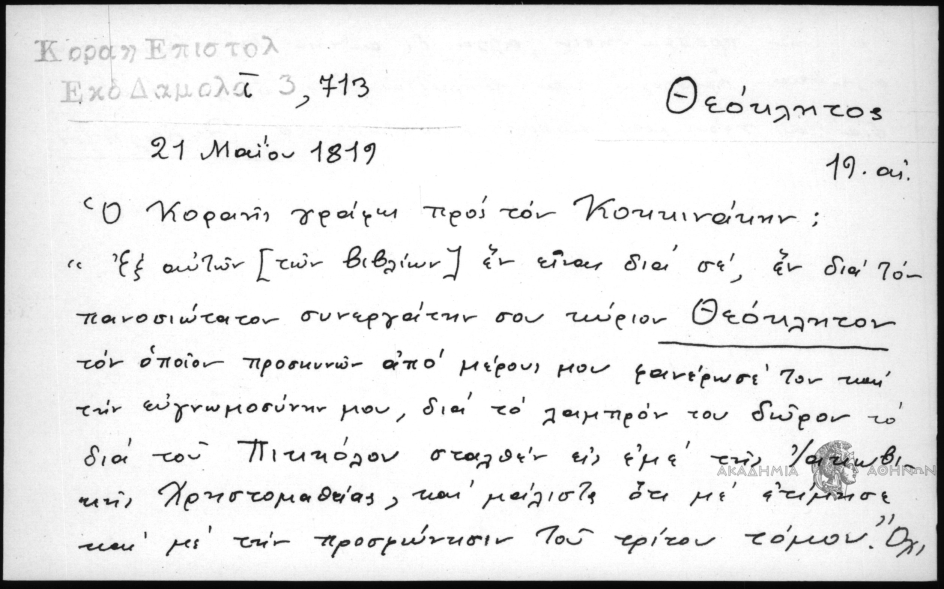 Κοραη Επιστολ
Εκδ Δαμαλα Τ 3, 713
Θεόκλητος
21 Μαΐου 1819
19. αἰ.
Ὁ Κοραῆς γράφει πρός τόν Κοκκινάκην:
"Ἐξ αὐτῶν [τῶν βιβλίων] ἕν εἶναι διά σέ, ἕν διά τόν
πανοσιώτατον συνεργάτην σου κύριον Θεόκλητον
τόν ὁποῖον προσκυνῶν ἀπό μέρους μου φανέρωσέ του καί
τήν εὐγνωμοσύνην μου, διά τό λαμπρόν του δῶρον τό
διά τοῦ Πικκόλου σταλθέν εἰς ἐμέ τῆς Ἰακωβι-
κῆς Χρηστομαθείας, καί μάλιστα ὅτι μέ ἐτίμησε
καί μέ τήν προσφώνησιν τοῦ τρίτου τόμου." Ὄχι
ΑΚΑΔΗΜΙΑ ΑΘΗΝΩΝ